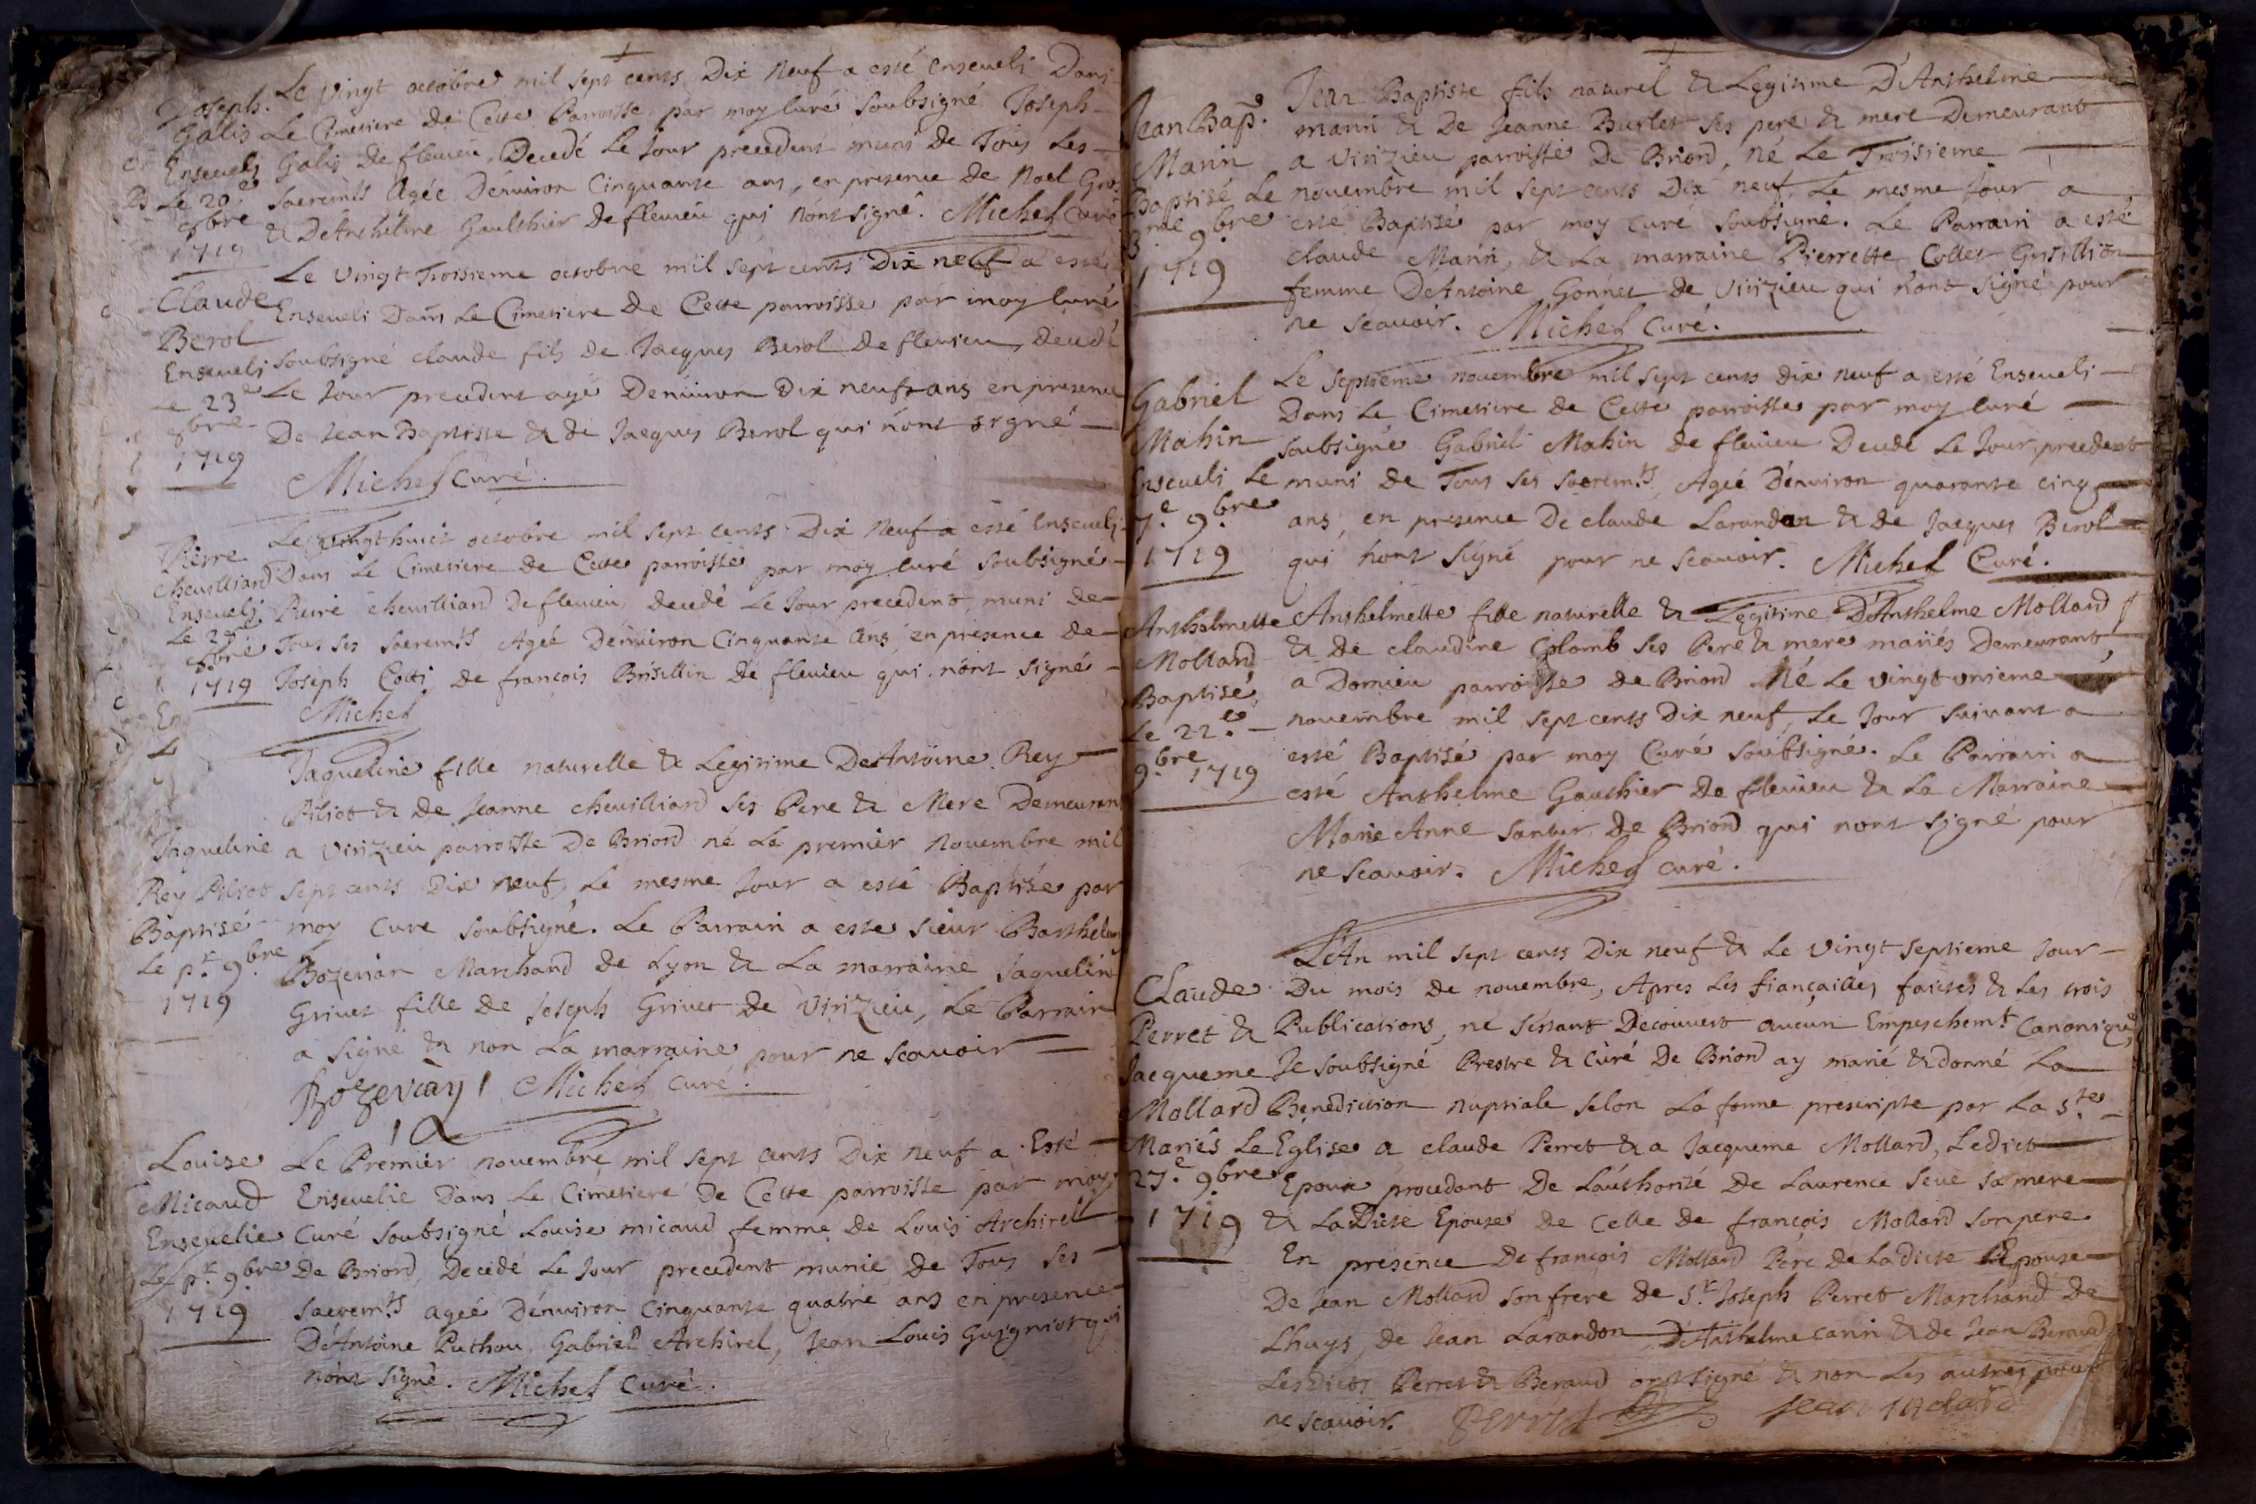 Joseph
Galis
Enseveli
Le 20e
8bre
1719
Le Vingt octobre mil sept cents Dix Neuf a esté enseveli Dans
Le Cimetiere de Cette Parroisse par moy Curé soubsigné Joseph
Galis de flevieu, Decedé Le Jour precedent muni de Tous Les
sacremts Agée Denviron Cinquante ans, en presence de Noel
& D'Anthelme Gaulthier de flevieu qui n'ont signé. Michel Curé
Claude
Berol
Enseveli
Le 23e
8bre
1719
Le vingt Troisieme octobre mil sept cents Dix neuf a esté
Enseveli Dans Le Cimetiere de Cette parroisse par moy Curé
soubsigné claude fils de Jacques Berol de flevieu, decedé
Le Jour precedent agé Denviron Dix neuf ans en presence
De Jean Baptiste & de Jacques Berol qui n'ont signé
Michel Curé.
Pierre
Chevilliard
Enseveli
Le 28e
8bre
1719
Le vingt huict octobre mil sept cents Dix Neuf a esté Enseveli
Dans Le Cimetiere de Cette parroisse par moy Curé soubsigné
Pierre chevilliard de flevieu, decedé Le Jour precedent, muni de
Tous ses sacremts Agée Denviron Cinquante Ans, en presence de
Joseph Cotti, de françois Brisillin de flevieu qui n'ont signé
Michel
Jaqueline
Rey Pilsot
Baptisé
Le pr 9bre
1719
Jaqueline fille naturelle & Legitime De Antoine Rey
Pilsot & de Jeanne chevilliard ses Pere & Mere Demeurant
a virizieu parroisse De Briord né Le premier Novembre mil
sept cents Dix neuf, Le mesme Jour a esté Baptisée par
moy Cure soubsigné. Le Parrain a esté sieur Barthelem
Bozevian Marchand de Lyon & La marraine Jaqueline
Grivet fille de Joseph Grivet de Virizieu, Le Parrain
a signé & non La marraine pour ne scavoir
Bozevian Michel curé.
Louise
Micaud
Ensevelie
Le pr 9bre
1719
Le Premier novembre mil sept cents Dix neuf a Esté
Ensevelie Dans Le Cimetiere De Cette parroisse par moy
Curé soubsigné Louise micaud femme de Louis Archirel
De Briord, Decedé Le Jour precedent munie de Tous ses
sacremts agée Denviron Cinquante quatre ans en presence
D'Antoine Puthou, Gabriel Archirel, Jean Louis Guigniot qui
n'ont signé. Michel curé.
Jean Bapt.
Marin
Baptisé Le
3me 9bre
1719
Jean Baptiste fils naturel & Legitime D'Anthelme
marin & De Jeanne Burlet ses pere & mere Demeurant
a virizieu parroisse De Briord, né Le Troisieme
novembre mil sept cents Dix neuf, Le mesme Jour a
esté Baptisé par moy curé soubsigné. Le Parrain a esté
claude Marin, & La marraine Pierrette Collet
femme De Antoine Gonnet de virizieu qui n'ont signé pour
ne scavoir. Michel curé.
Gabriel
Mahin
Enseveli Le
7e 9bre
1719
Le septieme novembre mil sept cents dix neuf a esté Enseveli
Dans Le Cimetiere de Cette parroisse par moy Curé
soubsigné Gabriel Mahin de flevieu Decedé Le Jour precedent
muni de Tous ses sacremts, Agée D'environ quarante cinq
ans, en presence De claude Larandon & de Jacques Berol
qui n'ont signé pour ne scavoir. Michel Curé.
Anthelmette
Mollard
Baptisé
Le 22e
9bre 1719
Anthelmette fille naturelle & Legitime D'Anthelme Mollard
& de claudine Colomb ses Pere & mere mariés Demeurant
a Dornieu parroisse de Briord Né Le vingt unieme
novembre mil sept cents Dix neuf, Le Jour suivant a
esté Baptisé par moy Curé soubsigné. Le Parrain a
esté Anthelme Gauthier de flevieu & La Marraine
Marie Anne de Briord qui n'ont signé pour
ne scavoir. Michel curé.
Claude
Perret &
Jacqueme
Mollard
Mariés Le
27e 9bre
1719
L'An mil sept cents Dix neuf & Le vingt septieme Jour
Du mois de novembre, Apres Les fiançailles faictes & Les trois
Publications, ne s'estant Decouvert aucun Empeschemt Canonique,
Je soubsigné Prestre & Curé De Briord ay marié & donné La
Benediction nuptiale selon La forme prescripte par La ste
Eglise a claude Perret & a Jacqueme Mollard, Ledict
Epoux procedant De L'authorité De Laurence seve sa mere
& La Dicte Epouse de Celle de françois Mollard son pere
En presence De françois Mollard Pere de La dicte Epouse
De Jean Mollard son frere de sr Joseph Perret Marchand de
Lhuys, de Jean Larandon D'Anthelme Carin & de Jean Beraud
Lesdicts Perret & Beraud ont signé & non Les autres pour
ne scavoir. Perret Jean